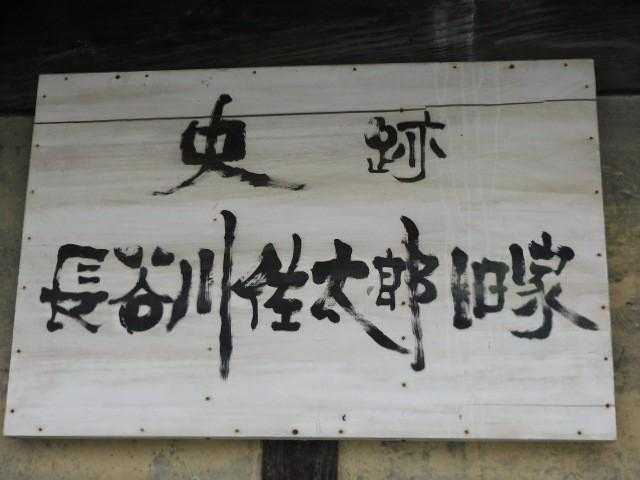 史跡
長谷川佐太郎旧家